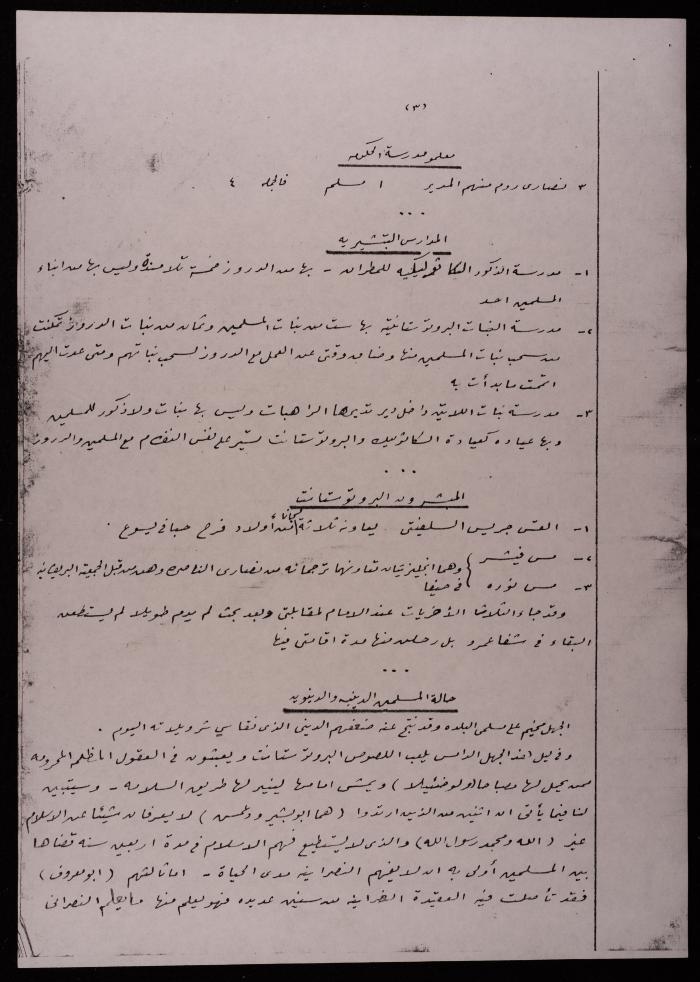 (٣)
معلمو مدرسة الحكومه
٣ نصارى روم منهم المدير ١ مسلم فالجمله ٤
...
المدارس التبشيريه
١- مدرسة الذكور الكاثوليكيه للمطران - بها من الدروز خمسة تلامذة وليس بها من ابناء
المسلمين احد
٢- مدرسة البنات البروتستانتية بها ست من بنات المسلمين وثمان من بنات الدروز تمكنت
من سحب بنات المسلمين منها وضاق وقتي عن العمل مع الدروز لسحب بناتهم ومتى عدت اليهم
اتممت ما بدأت به
٣- مدرسة بنات اللاتين داخل دير تديرها الراهبات وليس بها بنات ولا ذكور للمسلمين
وبها عياده كعيادة الكاثوليك والبروتستانت تسير على نفس النظام مع المسلمين والدروز
...
المبشرون البروتستانت
١- القس جريس السلفيتي يعاونه ثلاثة اولاد فرح حبا في يسوع
٢- مس فيشر
٣- مس نوره } وهما انجليزيتان تعاونهما ترجمانه من نصارى الناصره وهن من قبل الجمعية البريطانيه في حيفا
وقد جاء الثلاث الأخريات عند الامام لمقابلتي وبعد بحث لم يدم طويلا لم يستطعن
البقاء في شفاعمرو بل رحلن منها مدة اقامتي فيها
...
حالة المسلمين الدينيه والدنيويه
الجهل مخيم على مسلمي البلده وقد نتج عنه ضعفهم الديني الذي نقاسي شر ويلاته اليوم .
وفي ليل هذا الجهل الدامس يلعب اللصوص البروتستانت ويعبثون في العقول المظلمه المحرومه
ممن يحمل لها مصباحا ولو ضئيلا) ويمشي امامها لينير لها طريق السلامه - وسيتبين
لنا فيما يأتي ان اثنين من الذين ارتدوا (هما ابو بشير و) لا يعرفان شيئا عن الاسلام
غير (الله ومحمد رسول الله) والذي لا يستطيع فهم الاسلام في مدة اربعين سنه قضاها
بين المسلمين أولى به ان لا يفهم النصرانيه مدى الحياة - اما ثالثهم (ابو معروف)
فقد تأصلت فيه العقيدة النصرانيه من سنين عديده فهو يعلم منها ما يعلم النصراني